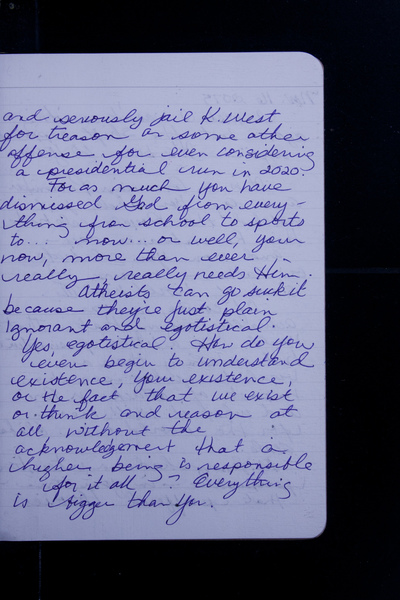 and seriously jail K. West
for treason or some other
offense for even considering
a presidential run in 2020.
For as much you have
dismissed God from every-
thing from school to sports
to... now... or well, your
now, more than ever -
really, really needs Him.
Atheists can go suck it
because they're just plain
ignorant and egotistical.
Yes, egotistical. How do you
even begin to understand
existence, your existence,
or the fact that we exist
or think and reason at
all without the
acknowledgement that a
higher being is responsible
for it all? Everything
is bigger than you.